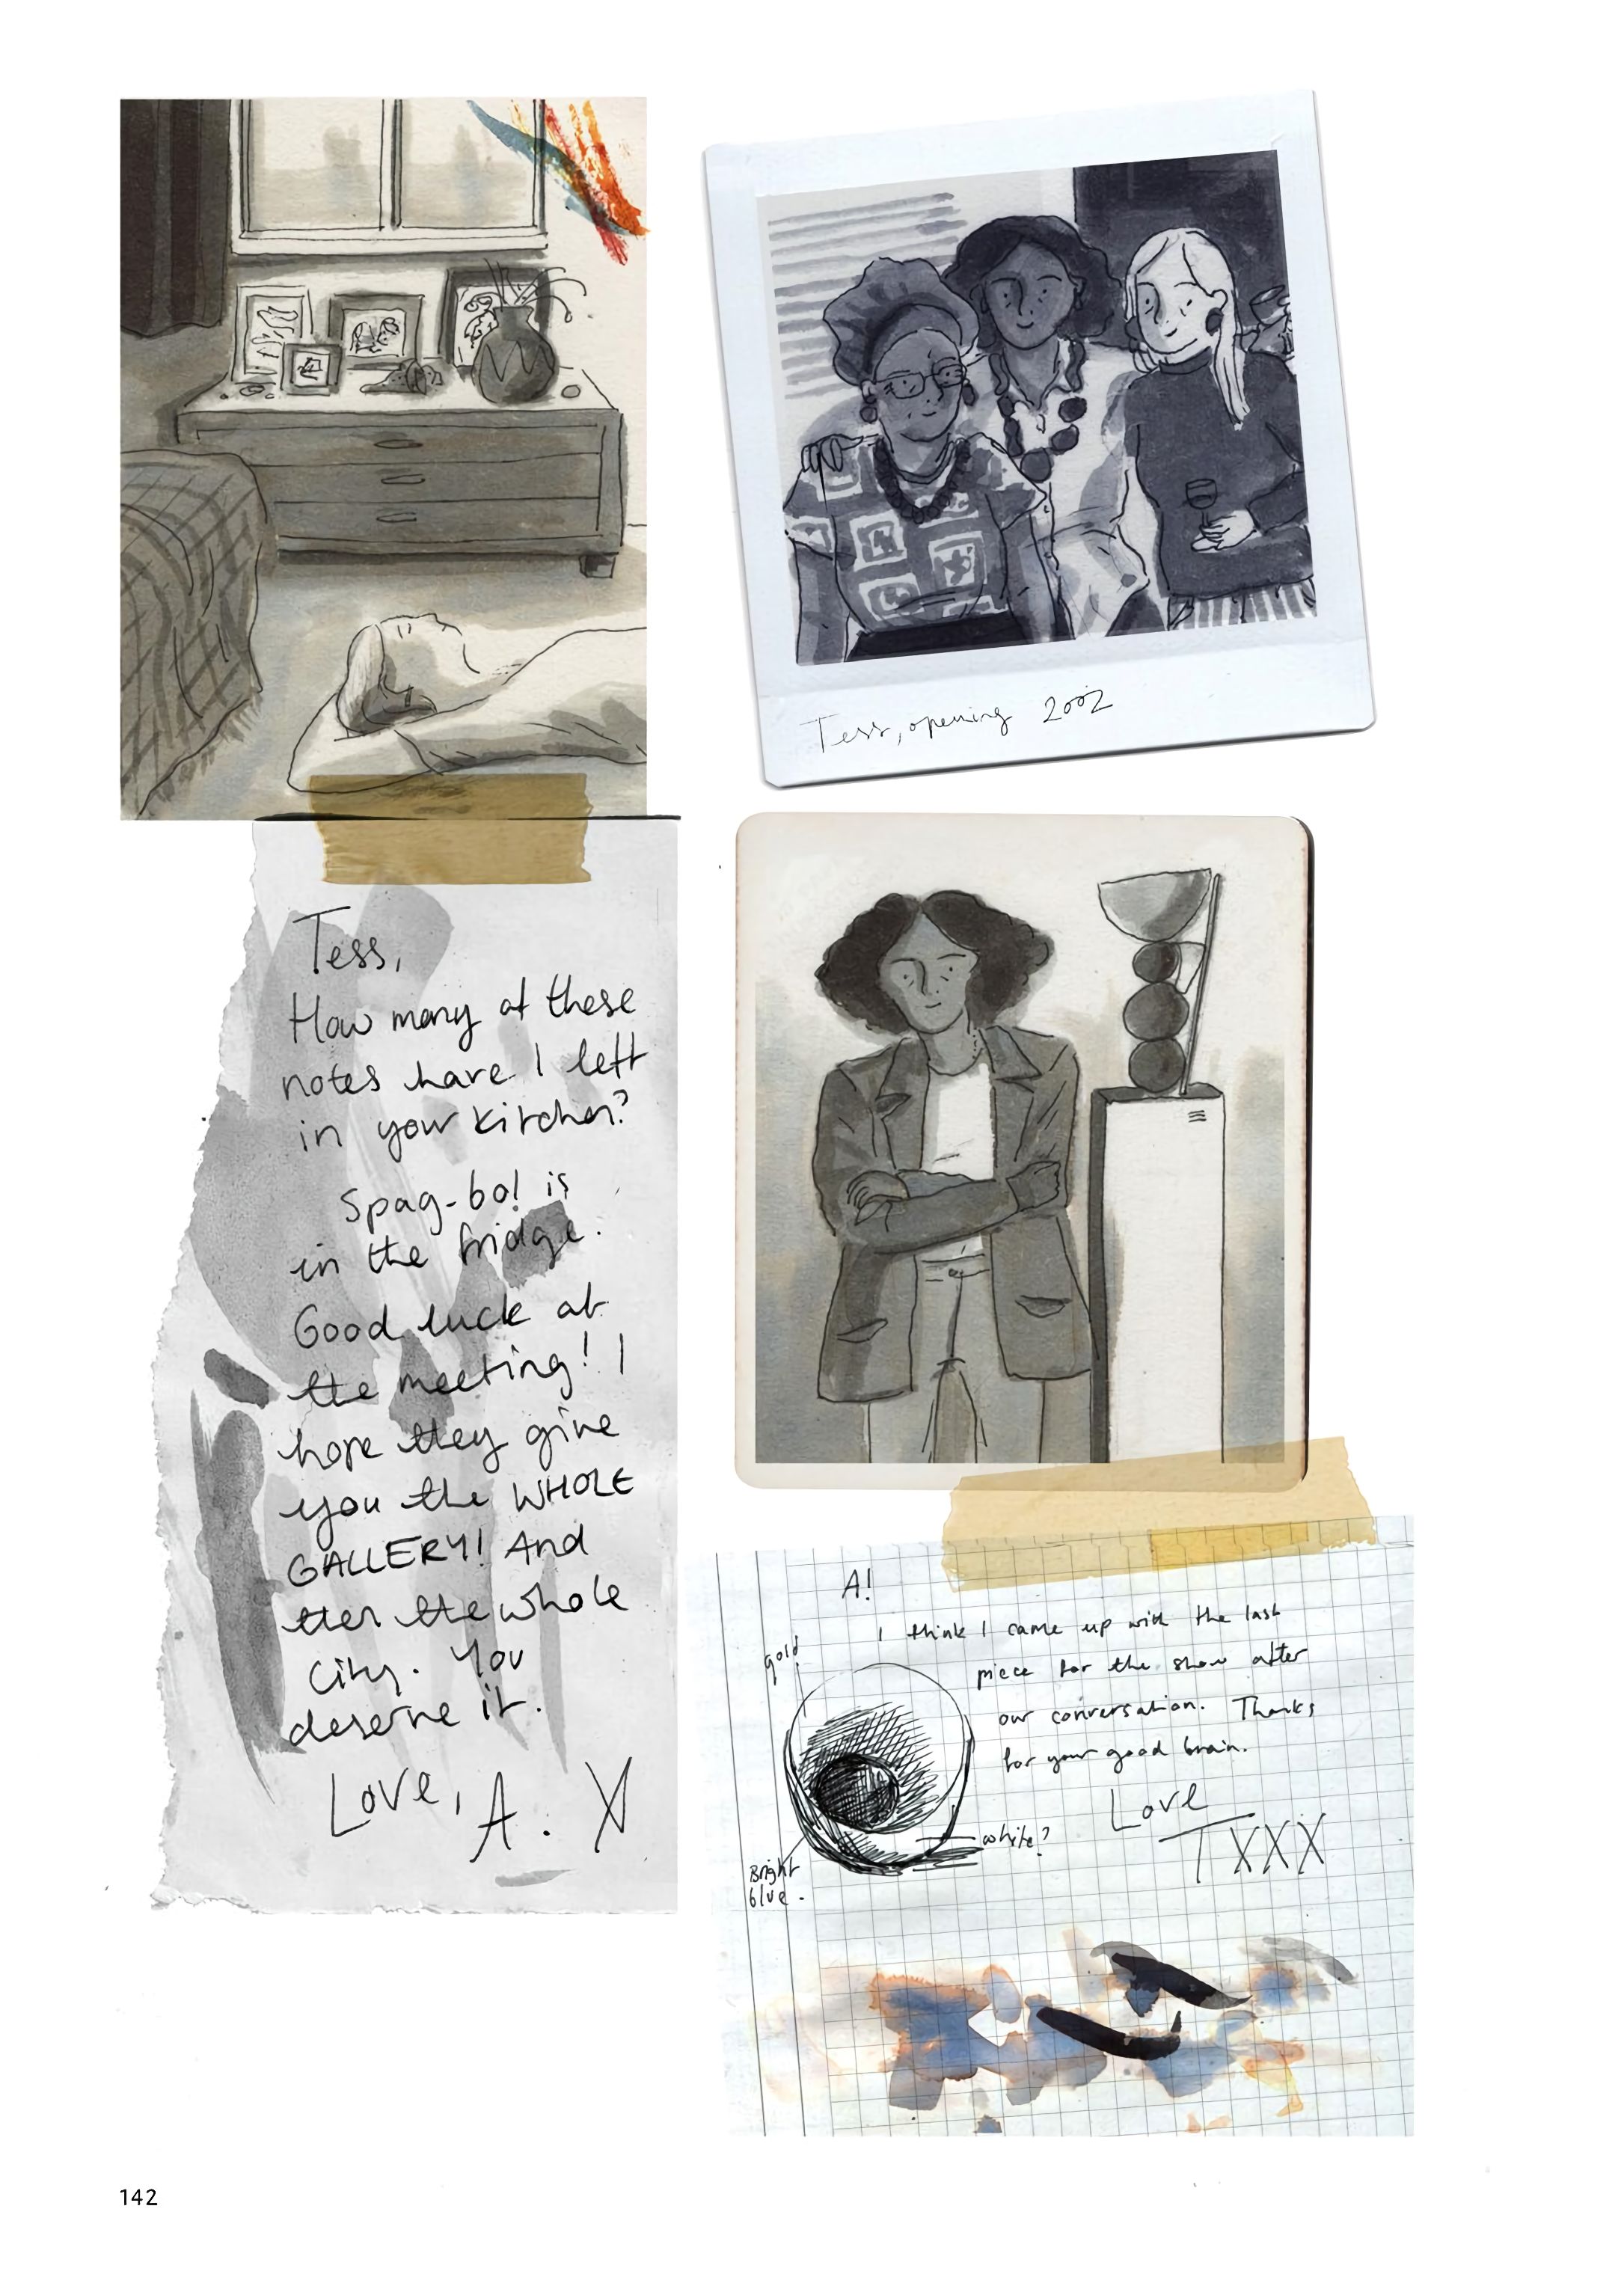 Tess, opening 2002
Tess,
How many of these
notes have I left
in your kitchen?
Spag-bol is
in the fridge.
Good luck at
the meeting! I
hope they give
you the WHOLE
GALLERY! And
then the whole
City. You
deserve it.
Love, A. X
A!
I think I came up with the last
piece for the show after
our conversation. Thanks
for your good brain.
Love
TXXX
gold
white?
Bright
blue.
142